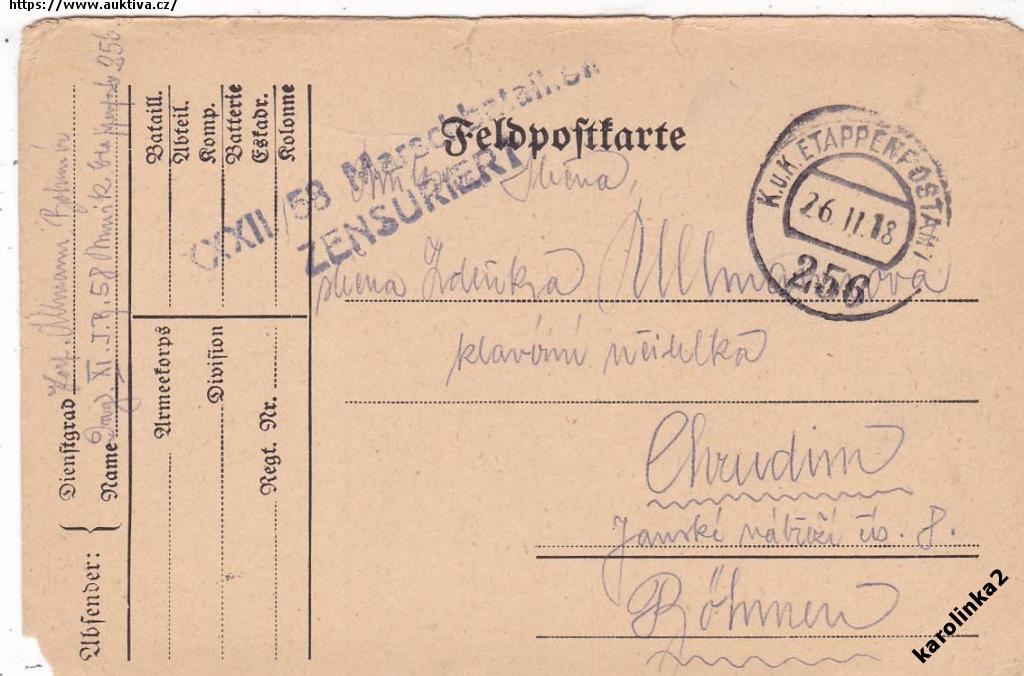 https://www.auktiva.cz/
Feldpostkarte
CXXII/58 Marschbataillon
ZENSURIERT
K.u.K. ETAPPENPOSTAMT
26. II. 18
256
slečna,
slečna Zdeňka Ullmannova
klavírní učitelka
Chrudim
Janské nábřeží čís. 8.
Böhmen
Absender:
Dienstgrad
Name
Ullmann
XI. I.R. 58
256
Bataill.
Abteil.
Komp.
Batterie
Eskadr.
Kolonne
Armeekorps
Division
Regt. Nr.
karolinka2